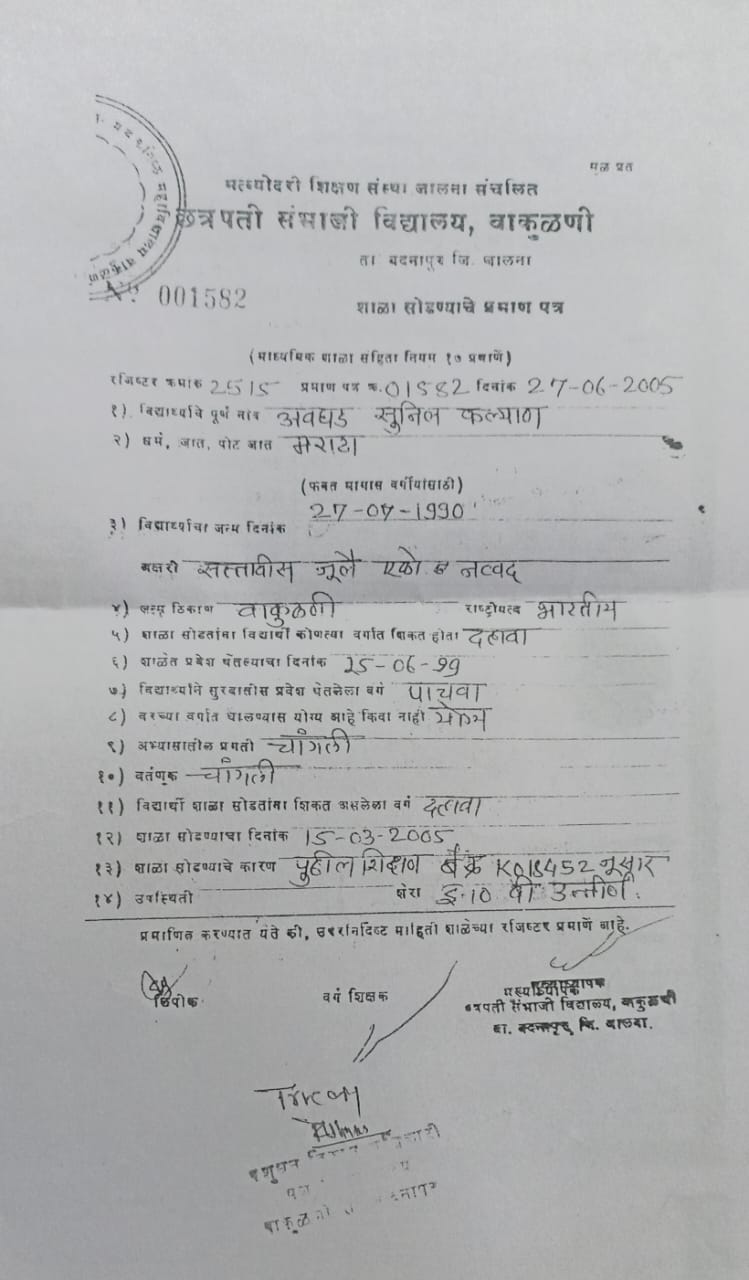 मळ प्रत
मत्स्योदरी शिक्षण संस्था जालना संचलित
छत्रपती संभाजी विद्यालय, वाकुळणी
ता बदनापुर जि. जालना
001582
शाळा सोडण्याचे प्रमाण पत्र
(माध्यमिक शाळा संहिता नियम १७ प्रमाणें)
रजिष्टर क्रमांक 2515 प्रमाण पत्र क्र. 01582 दिनांक 27-06-2005
१) विद्यार्थ्याचे पूर्ण नांव अवघड सुनिल कल्याण
२) धर्म, जात, पोट जात मराठा
(फक्त मागास वर्गीयांसाठी)
३) विद्यार्थ्याचा जन्म दिनांक 27-07-1990
अक्षरी सत्तावीस जूलै एकोनव्वद
४) जन्म ठिकाण वाकुळणी राष्ट्रीयत्व भारतीय
५) शाळा सोडतांना विद्यार्थी कोणत्या वर्गात शिकत होता दहावा
६) शाळेत प्रवेश घेतल्याचा दिनांक 25-06-99
७) विद्यार्थ्याने सुरवातीस प्रवेश घेतलेला वर्ग पाचवा
८) वरच्या वर्गात घालण्यास योग्य आहे किंवा नाही योग्य
९) अभ्यासातील प्रगती चांगली
१०) वर्तणूक चांगली
११) विद्यार्थी शाळा सोडतांना शिकत असलेला वर्ग दहावा
१२) शाळा सोडण्याचा दिनांक 15-03-2005
१३) शाळा सोडण्याचे कारण पुढील शिक्षण बै.क्र K018452 नूसार
१४) उपस्थिती शेरा इ.10 वी उत्तीर्ण.
प्रमाणित करण्यात येते की, उपरनिदिष्ट माहिती शाळेच्या रजिष्टर प्रमाणें आहे.
लिपीक वर्ग शिक्षक मुख्याध्यापक
छत्रपती संभाजी विद्यालय, वाकुळणी
ता. बदनापूर, जि. जालना.